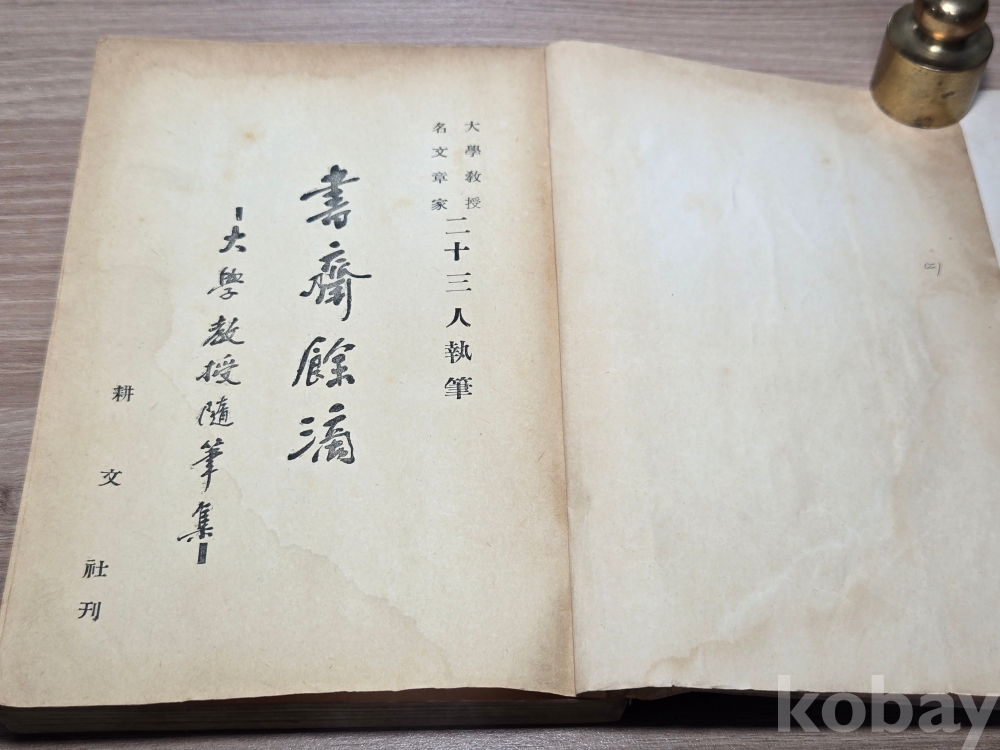 大學教授
名文章家
二十三人執筆
書齋餘滴
-大學教授隨筆集-
耕文社刊
kobay